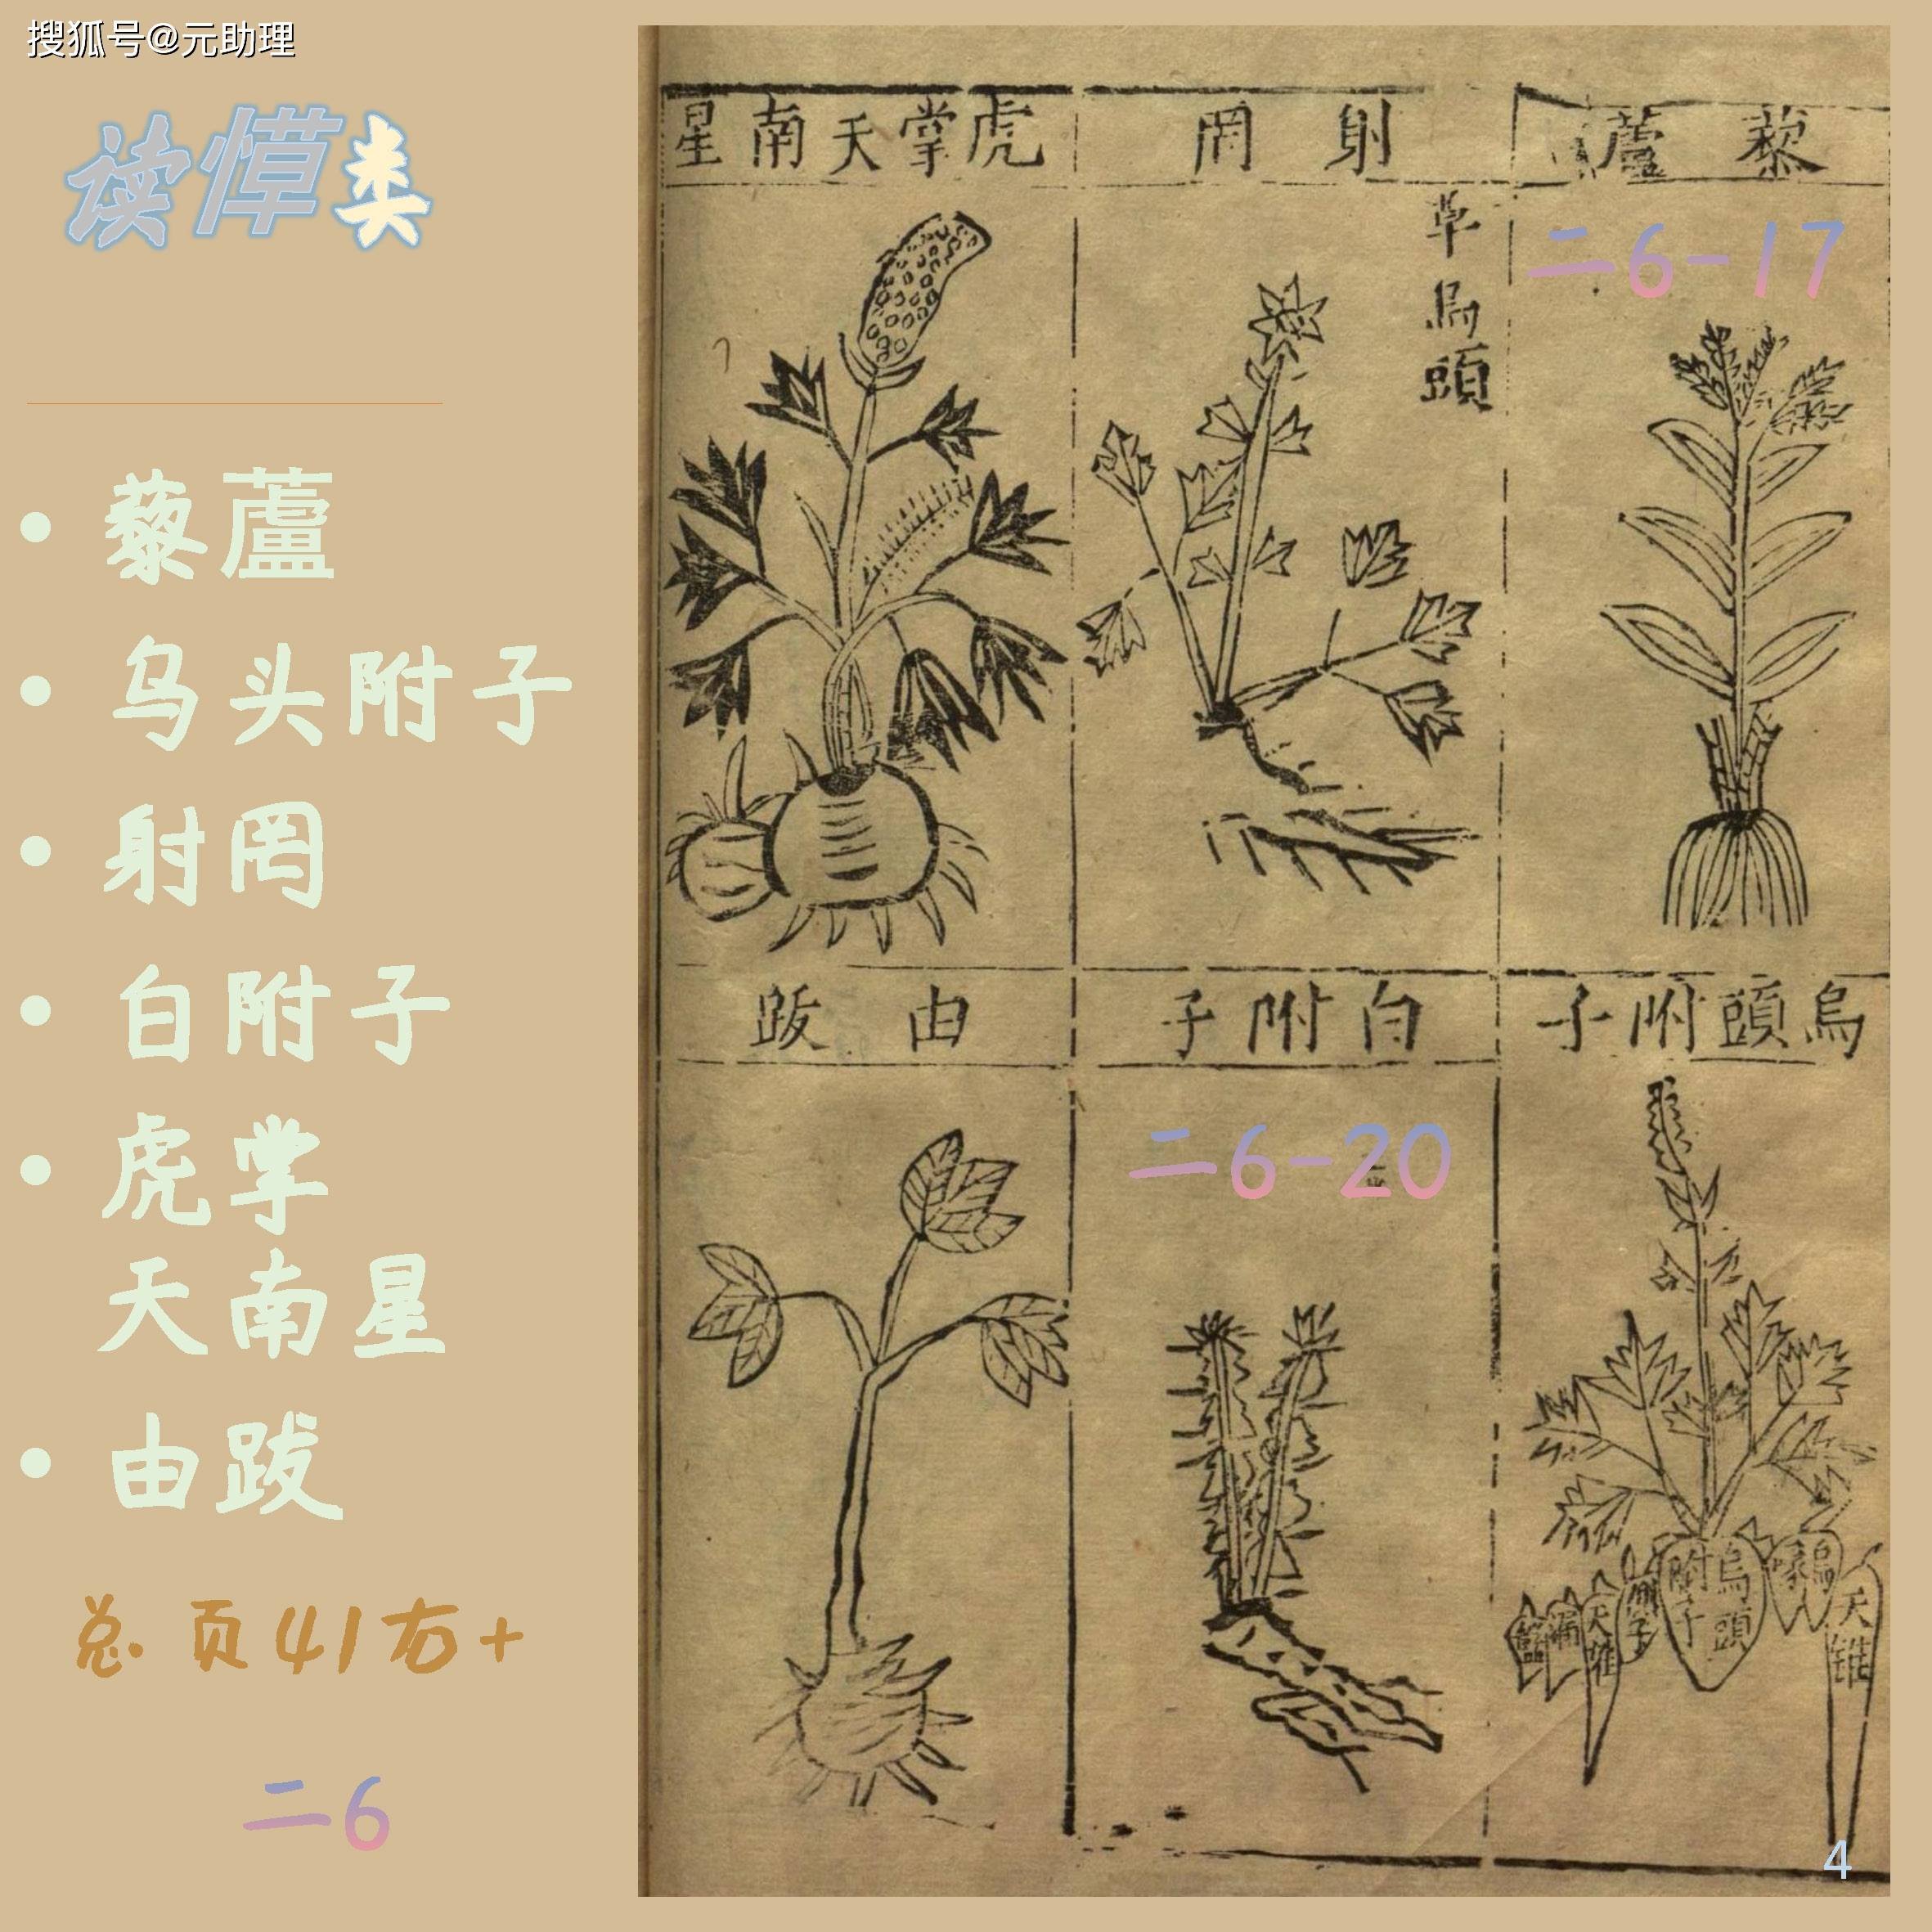 搜狐号@元助理
藜蘆
乌头附子
射罔
白附子
虎掌
天南星
由跋
总页41右+
二6
星南天掌虎
罔射
蘆藜
草烏頭
二6-17
跋由
子附白
子附頭烏
二6-20
烏頭
附子
側子
天錐
天錐
4